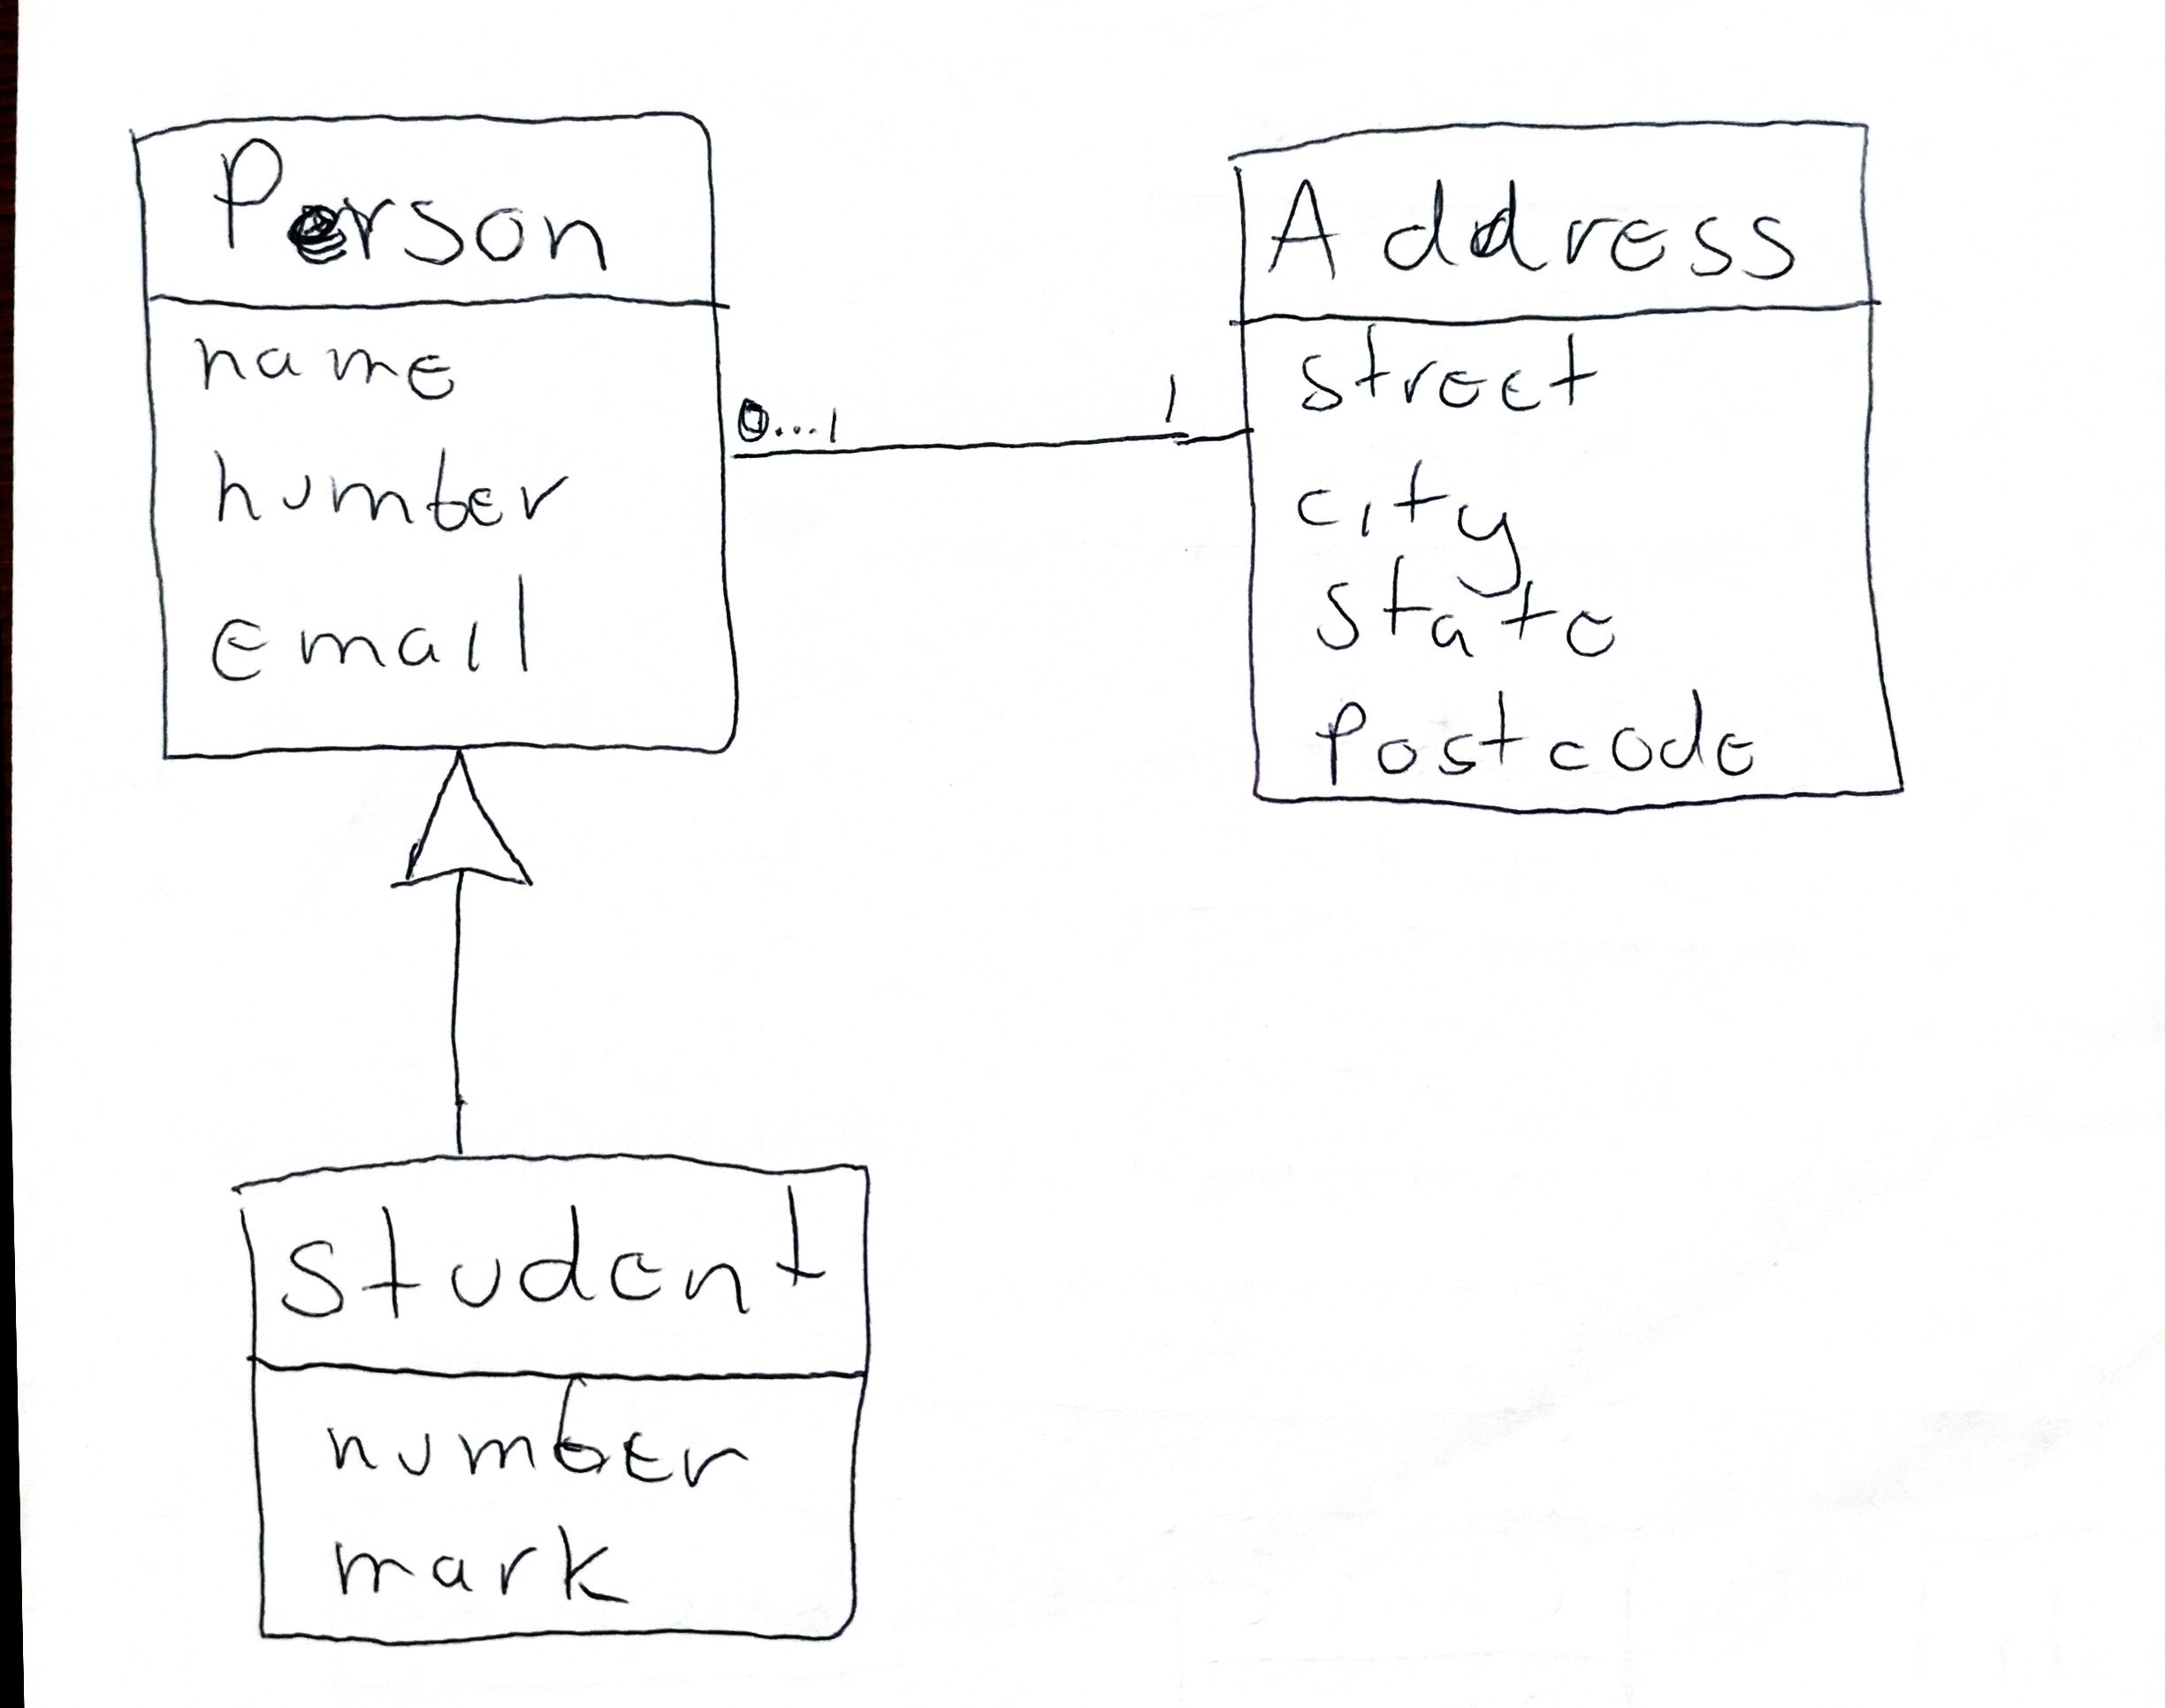 Person
name
number
email
0...1
1
Address
street
city
state
Postcode
Student
number
mark